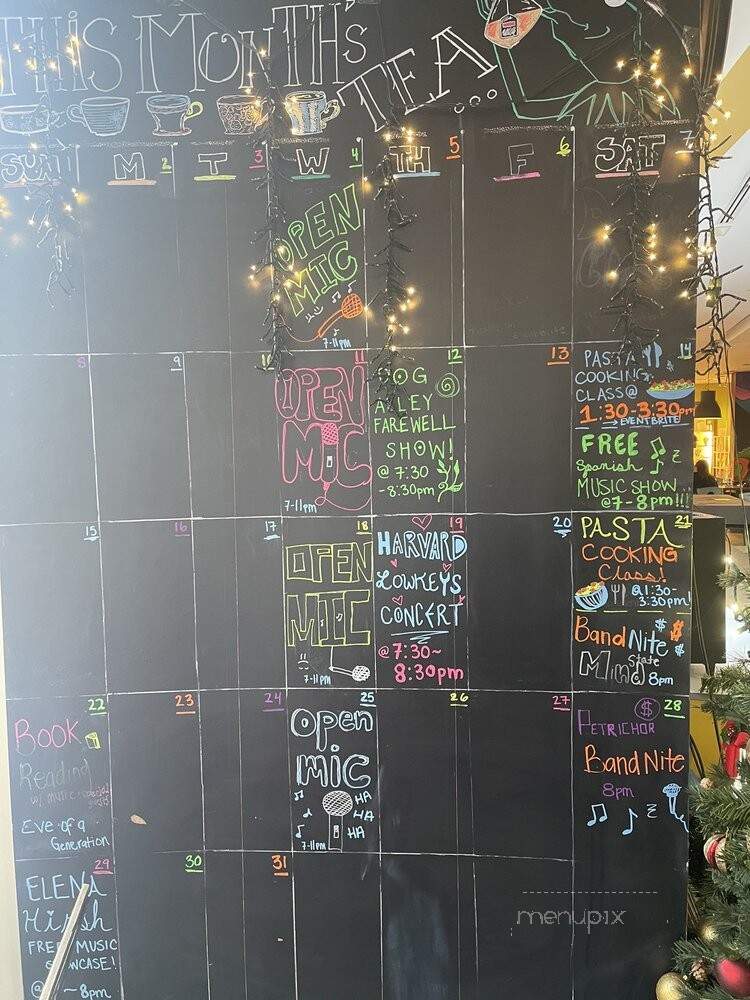 THIS MONTH'S
TEA...
SUN M T W TH F SAT
2 3 4 5 6 7
OPEN
MIC
7-11pm
8 9 10 11 12 13 14
OPEN
MIC
7-11pm
DOG
ALLEY
FAREWELL
SHOW!
@ 7:30
-8:30pm
PASTA
COOKING
CLASS@
1:30-3:30pm
→ EVENTBRITE!
FREE
Spanish
MUSIC SHOW
@7-8pm!!!
15 16 17 18 19 20 21
OPEN
MIC
7-11pm
HARVARD
LOWKEYS
CONCERT
@7:30~
8:30pm
PASTA
COOKING
Class!
@1:30-
3:30pm!
Band Nite $ $
$
Mind State 8pm
22 23 24 25 26 27 28
BOOK
Reading
w/ music
Eve of a
Generation
Open
mic
HA
HA
HA
7-11pm
$
PETRICHOR
Band Nite
8pm
29 30 31
ELENA
FREE MUSIC
SHOWCASE!
@ -8pm
menupix